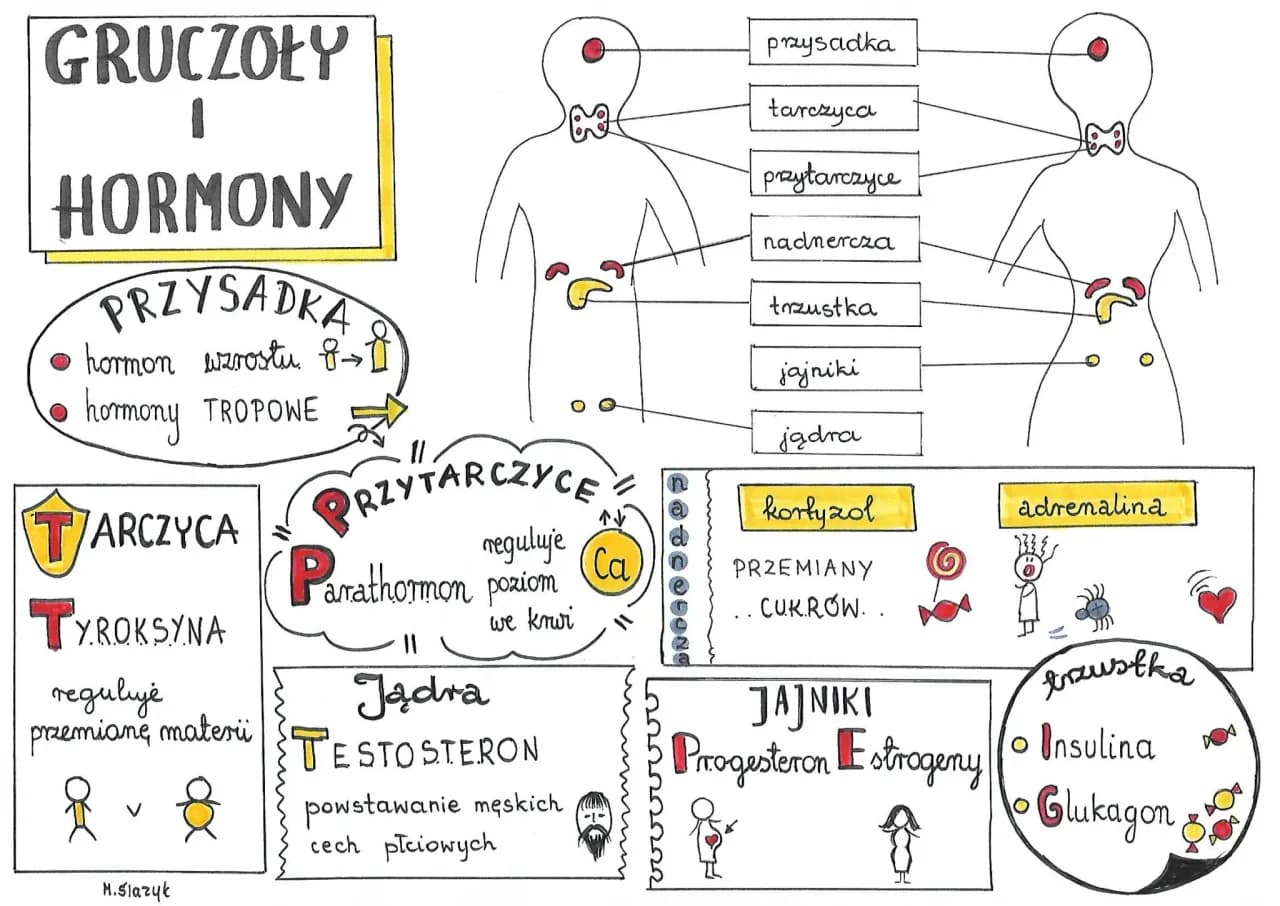 GRUCZOŁY
I
HORMONY
przysadka
tarczyca
przytarczyce
nadnercza
trzustka
jajniki
jądra
PRZYSADKA
hormon wzrostu
hormony TROPOWE
TARCZYCA
TYROKSYNA
reguluje
przemianę materii
PRZYTARCZYCE
Parathormon
reguluje
poziom
we krwi
Ca
nadnercza
kortyzol
PRZEMIANY
.. CUKRÓW..
adrenalina
Jądra
TESTOSTERON
powstawanie męskich
cech płciowych
JAJNIKI
Progesteron Estrogeny
trzustka
Insulina
Glukagon
M.Ślazyk